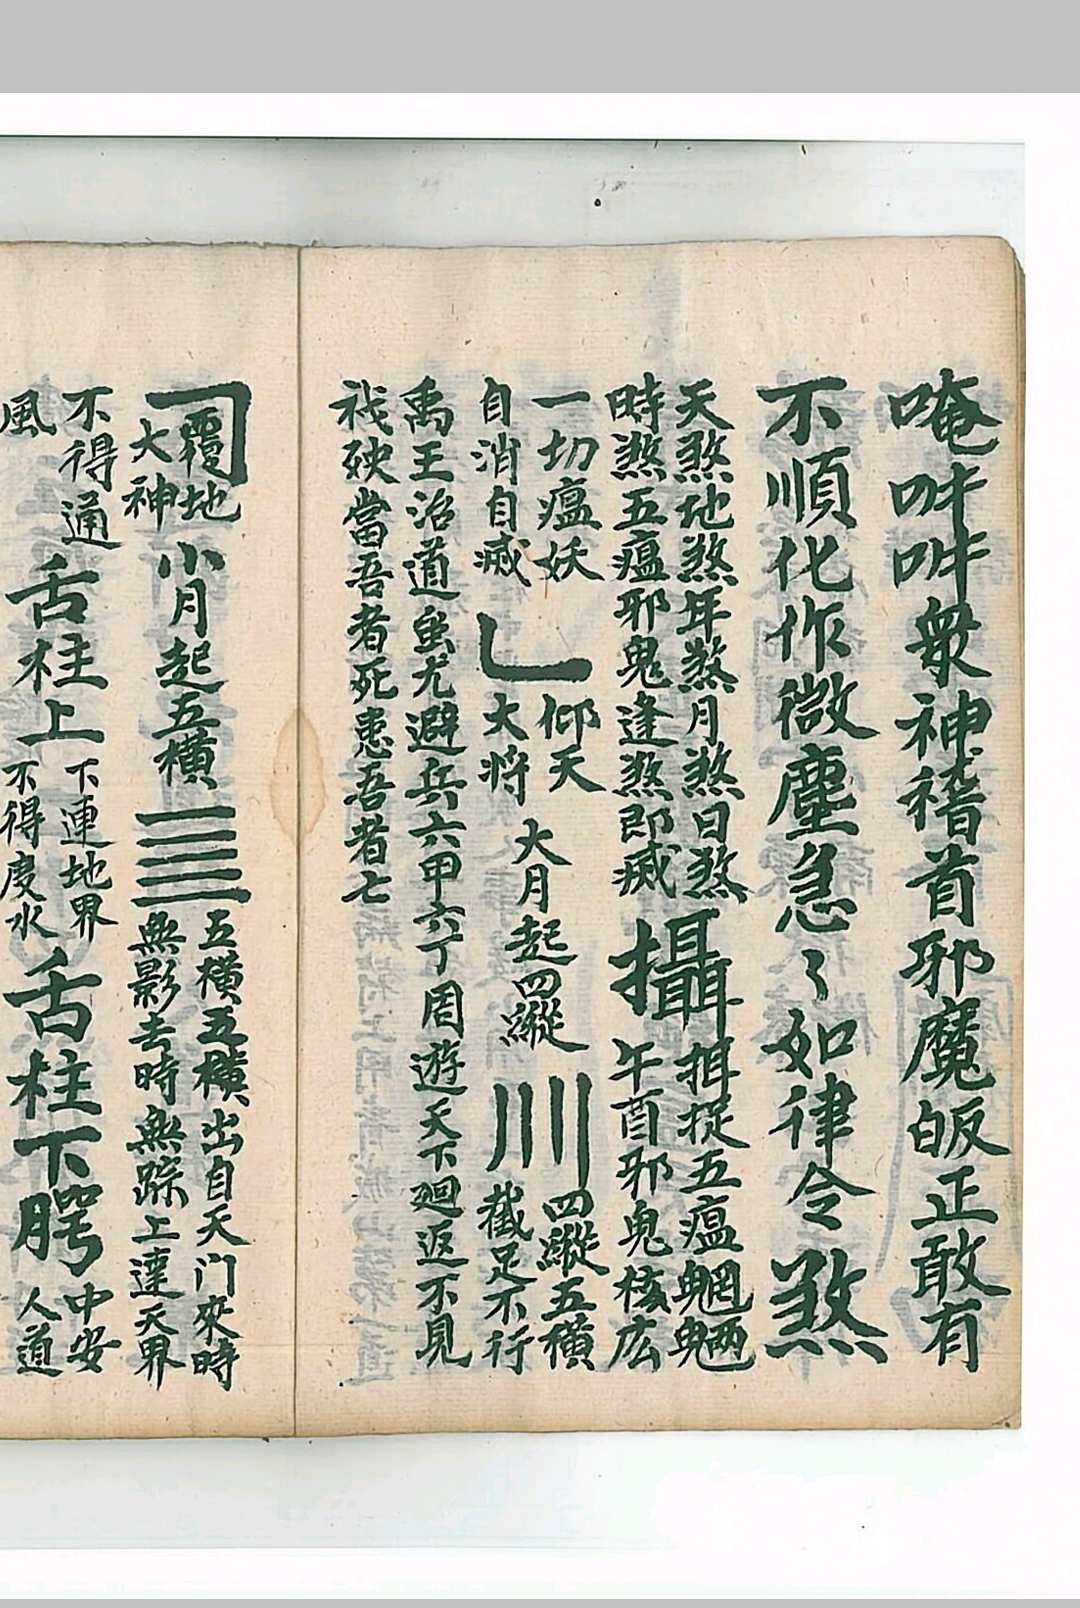 唵吽吽衆神稽首邪魔皈正敢有
不順化作微塵急〻如律令煞
天煞地煞年煞月煞日煞
時煞五瘟邪鬼逢煞即滅
攝
揖捉五瘟魍魎
午酉邪鬼核広
一切瘟妖
自消自滅
乚
仰天
大将
大月起四縱
川
四縱五横
截足不行
禹王治道蚩尤避兵六甲六丁周遊天下廻返不見
殃當吾者死患吾者七
覆地
大神
小月起五横
五横五横出自天门來時
無影去時無踪上達天界
不得通
風
舌柱上
下連地界
不得度水
舌柱下腭
中安
人道